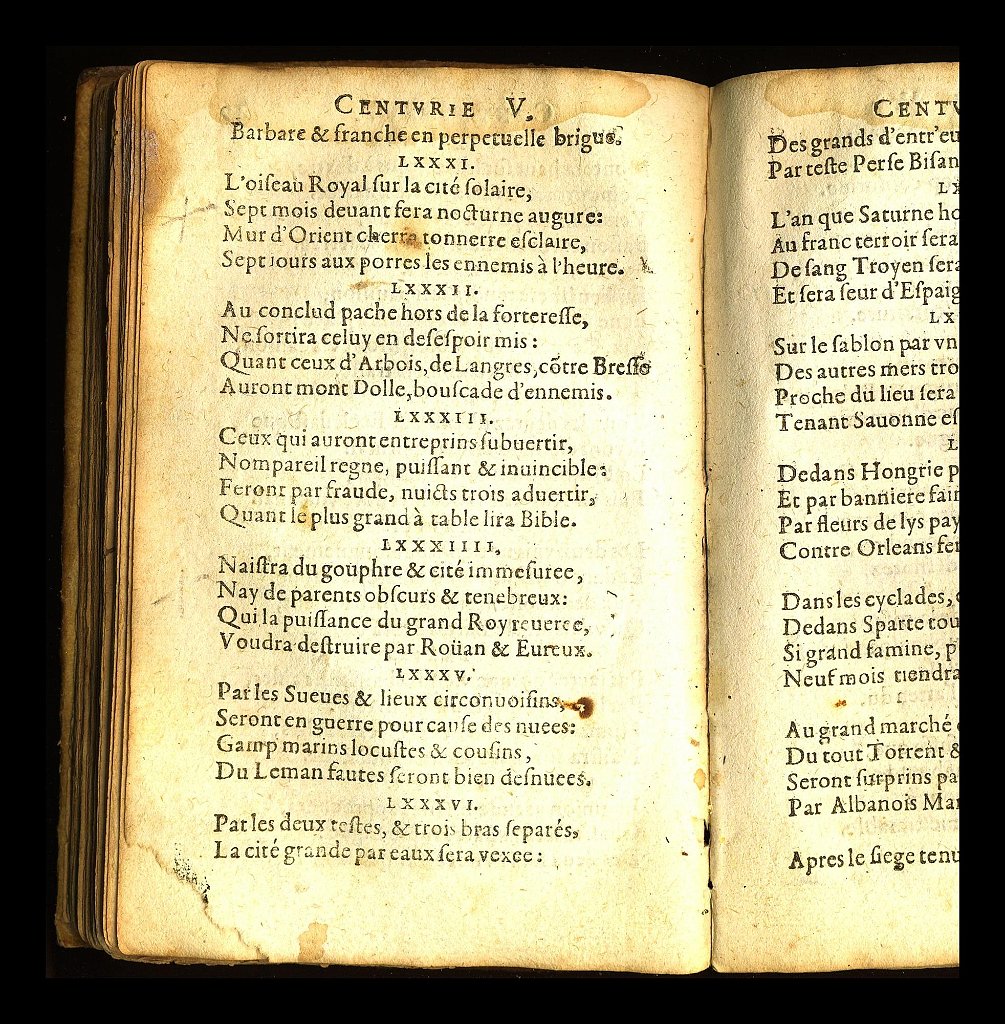 CENTVRIE V.
Barbare & franche en perpetuelle brigue.
LXXXI.
L'oiſeau Royal ſur la cité ſolaire,
Sept mois deuant fera nocturne augure:
Mur d'Orient cherra tonnerre eſclaire,
Sept iours aux porres les ennemis à l'heure.
LXXXII.
Au conclud pache hors de la fortereſſe,
Ne ſortira celuy en deſeſpoir mis:
Quant ceux d'Arbois, de Langres, cõtre Breſſe
Auront mont Dolle, bouſcade d'ennemis.
LXXXIII.
Ceux qui auront entreprins ſubuertir,
Nompareil regne, puiſſant & inuincible:
Feront par fraude, nuicts trois aduertir,
Quant le plus grand à table lira Bible.
LXXXIIII.
Naiſtra du gouphre & cité immeſuree,
Nay de parents obſcurs & tenebreux:
Qui la puiſſance du grand Roy reueree,
Voudra deſtruire par Roüan & Eureux.
LXXXV.
Par les Sueues & lieux circonuoiſins,
Seront en guerre pour cauſe des nuees:
Gamp marins locuſtes & couſins,
Du Leman fautes ſeront bien deſnuees.
LXXXVI.
Par les deux teſtes, & trois bras ſeparés,
La cité grande par eaux ſera vexee:
CENTV
Des grands d'entr'eu
Par teſte Perſe Biſan
LX
L'an que Saturne ho
Au franc terroir ſera
De ſang Troyen ſera
Et ſera ſeur d'Eſpaig
LX
Sur le ſablon par vn
Des autres mers tro
Proche du lieu ſera
Tenant Sauonne eſ
L
Dedans Hongrie p
Et par banniere fair
Par fleurs de lys pay
Contre Orleans fer
Dans les cyclades,
Dedans Sparte tou
Si grand famine, p
Neuf mois tiendra
Au grand marché
Du tout Torrent &
Seront ſurprins pa
Par Albanois Mar
Apres le ſiege tenu